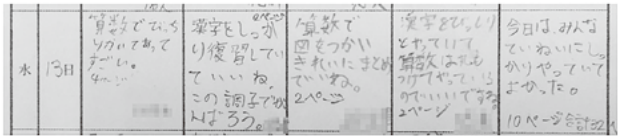 水
13日
算数でびっち
りかいてあって
すごい。
4ページ
2ページ
漢字をしっか
り復習してい
ていいね。
この調子でが
んばろう。
算数で
図をつかい
きれいにまとめ
ていいね。
2ページ
漢字をびっしり
とやっていて
算数は
つけてやっている
のでいいですね
2ページ
今日は、みんな
ていねいにしっ
かりやっていて
よかった。
10ページ合計